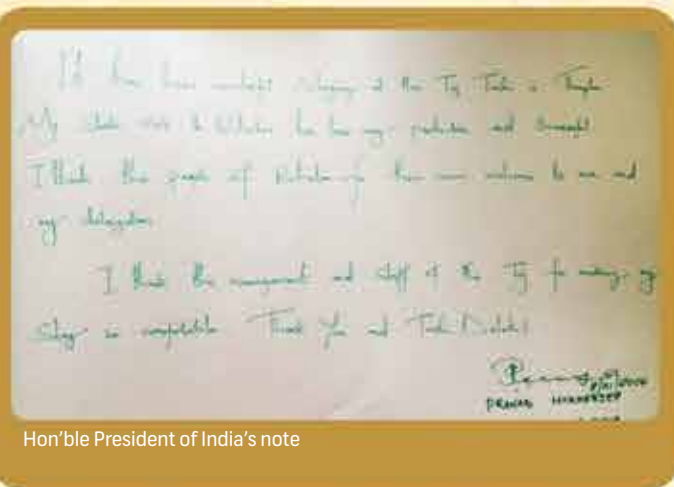 It has been wonderful staying at the Taj Tashi in Thimphu
My State Visit to Bhutan has been very productive and
I thank the people of Bhutan for their warm welcome to me and
my delegation
I thank the management and staff of the Taj for making my
stay so comfortable Thank You and Tashi Delek!
PRANAB MUKHERJEE
Hon'ble President of India's note